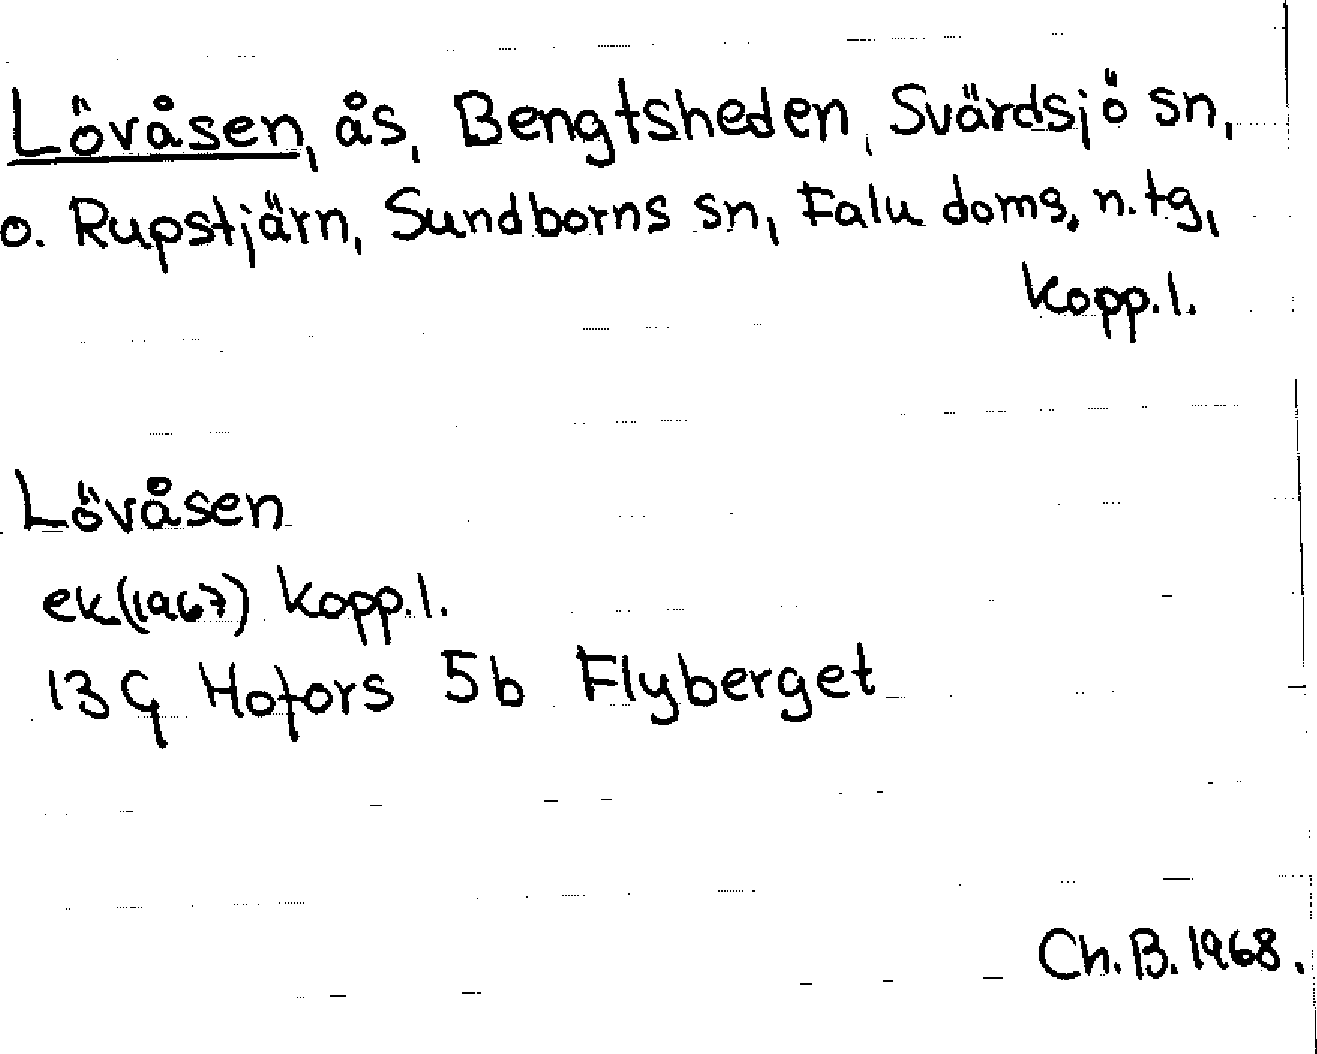 Lövåsen, ås, Bengtsheden, Svärdsjö sn,
o. Rupstjärn, Sundborns sn, Falu doms. n. tg,
Kopp. l.
Lövåsen
ek. (1967) Kopp. l.
13 G Hofors 5b Flyberget
Ch. B. 1968.